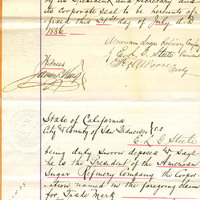 by its President and Secretary and
its corporate seal to be hereunto af-
fixed this 31st day of July A.D.
1886.
American Sugar Refining Comp
E. L. G. Steele President
Secty
Witness
State of California
City & County of San Francisco } ss
E. L. G. Steele
being duly sworn deposes & says
he is the President of the American
Sugar Refinery Company the Corpor-
ation named in the foregoing claim
for Trade Mark